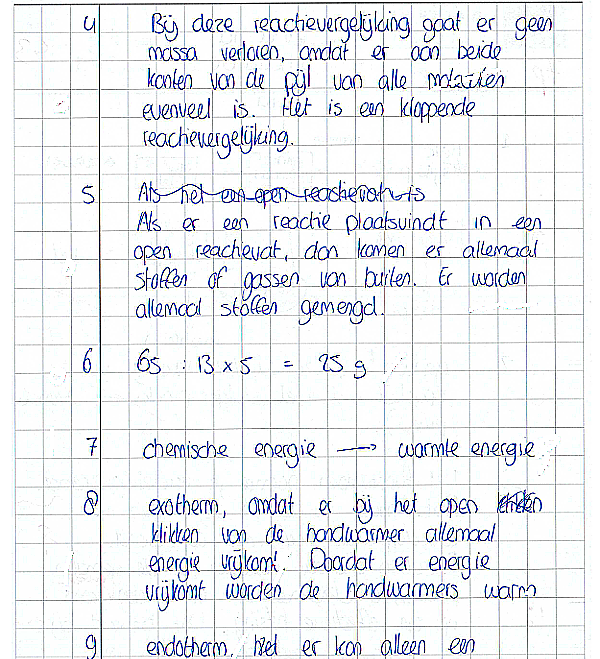 4 Bij deze reactievergelijking gaat er geen
massa verloren, omdat er aan beide
kanten van de pijl van alle
evenveel is. Het is een kloppende
reactievergelijking.
5 Als het een open reactievat is
Als er een reactie plaatsvindt in een
open reactievat, dan komen er allemaal
stoffen of gassen van buiten. Er worden
allemaal stoffen gemengd.
6 65 : 13 x 5 = 25 g
7 chemische energie → warmte energie
8 exotherm, omdat er bij het open
klikken van de handwarmer allemaal
energie vrijkomt. Doordat er energie
vrijkomt worden de handwarmers warm
9 endotherm. er kan alleen een